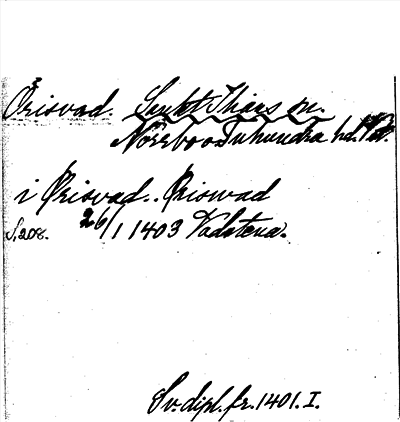 Örisvad. Sankt Ilians sn.
Norrbo o Tuhundra hd.
i Ørisvad.. Øriswad
S. 208. 26/1 1403 Vadstena.
Sv. dipl. fr. 1401. I.